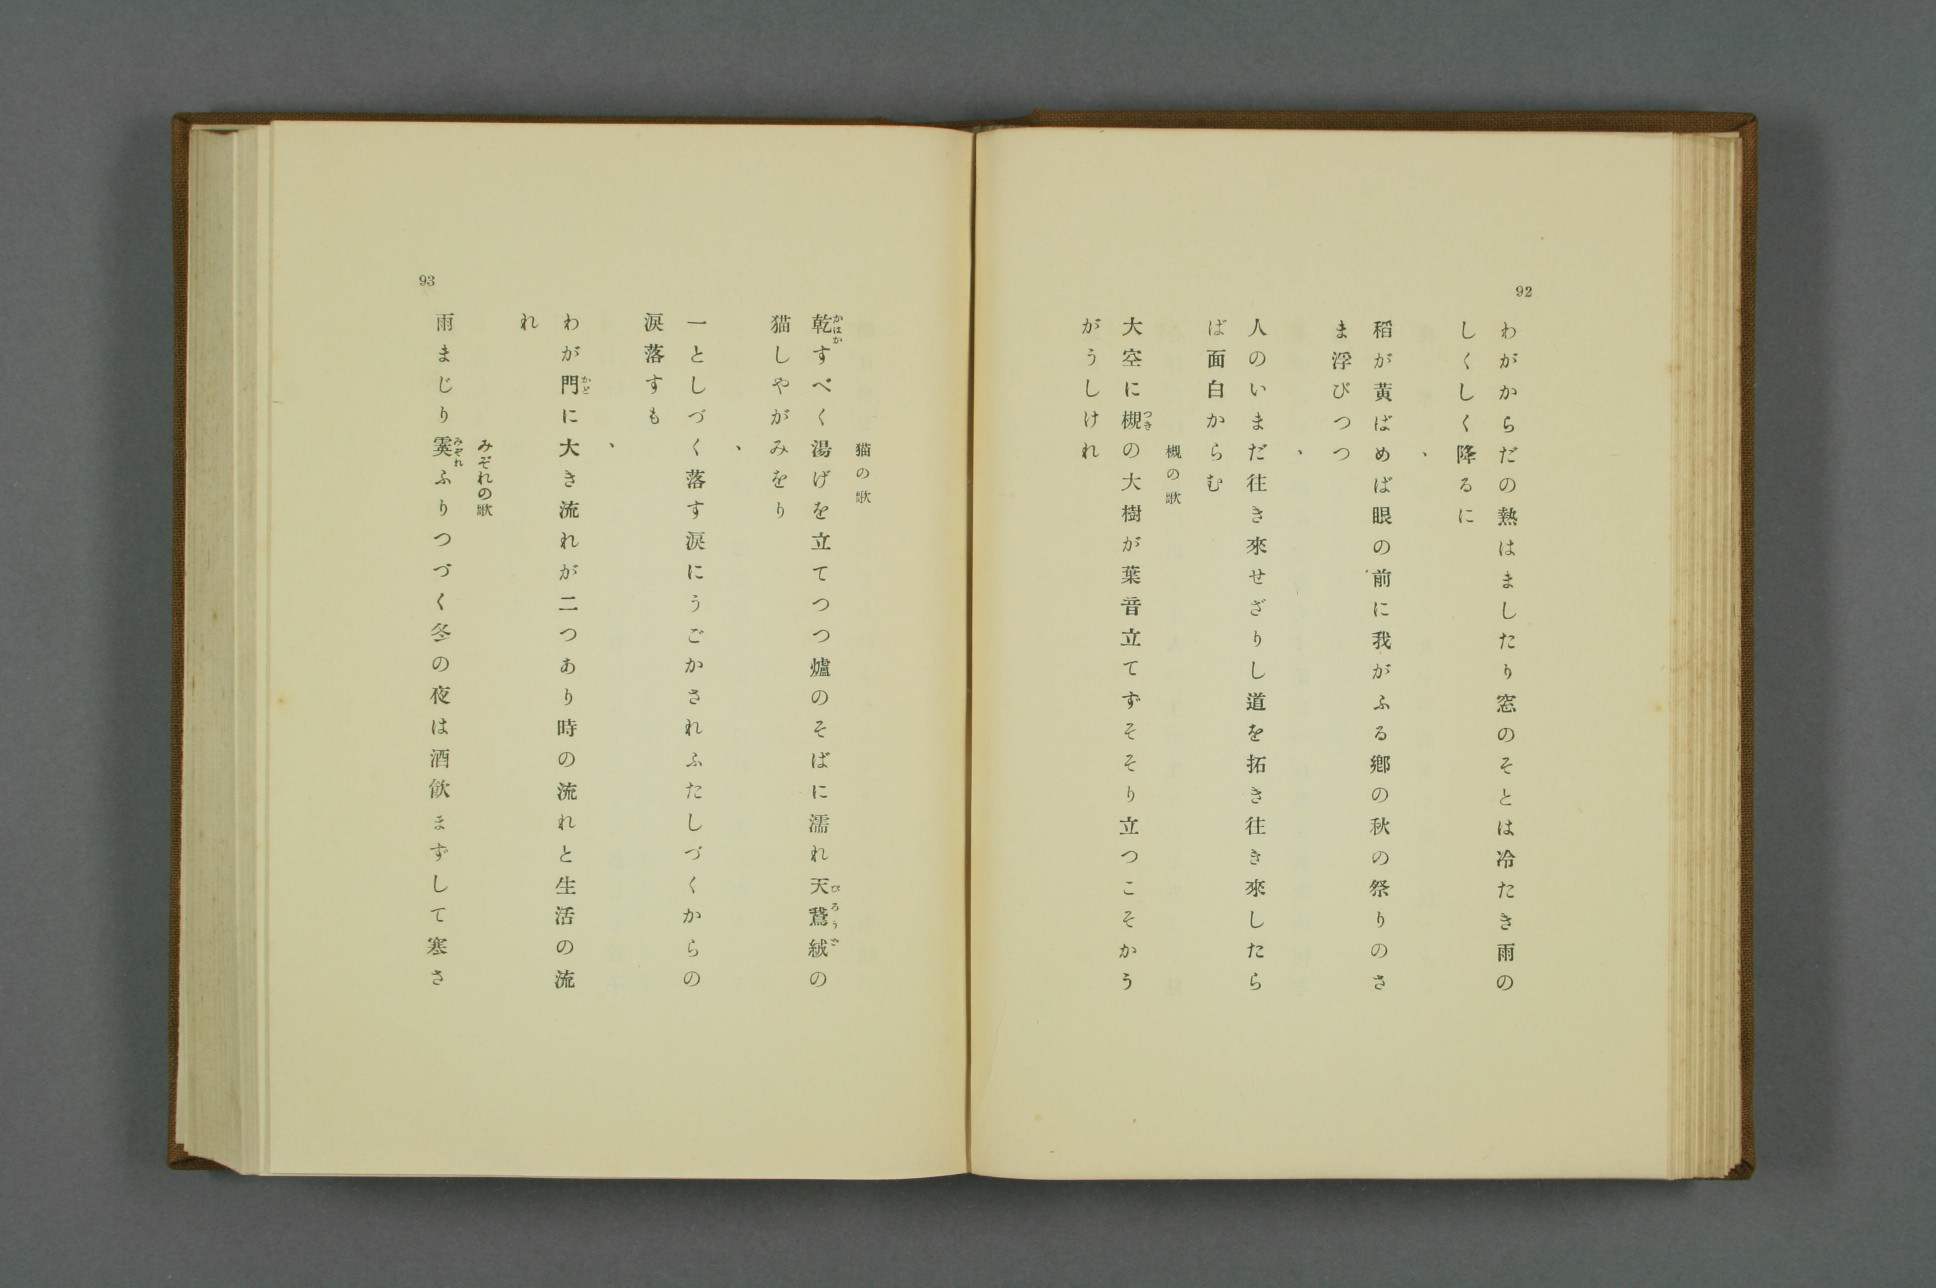 92
わがからだの熱はましたり窓のそとは冷たき雨の
しくしく降るに
、
稻が黄ばめば眼の前に我がふる鄕の秋の祭りのさ
ま浮びつつ
、
人のいまだ往き來せざりし道を拓き往き來したら
ば面白からむ
槻の歌
大空に槻の大樹が葉音立てずそそり立つこそかう
つき
がうしけれ
猫の歌
乾すべく湯げを立てつつ爐のそばに濡れ天鵞絨の
かはか
びろうど
猫しやがみをり
、
一としづく落す涙にうごかされふたしづくからの
涙落すも
、
わが門に大き流れが二つあり時の流れと生活の流
かど
れ
みぞれの歌
雨まじり霙ふりつづく冬の夜は酒飮まずして寒さ
みぞれ
93